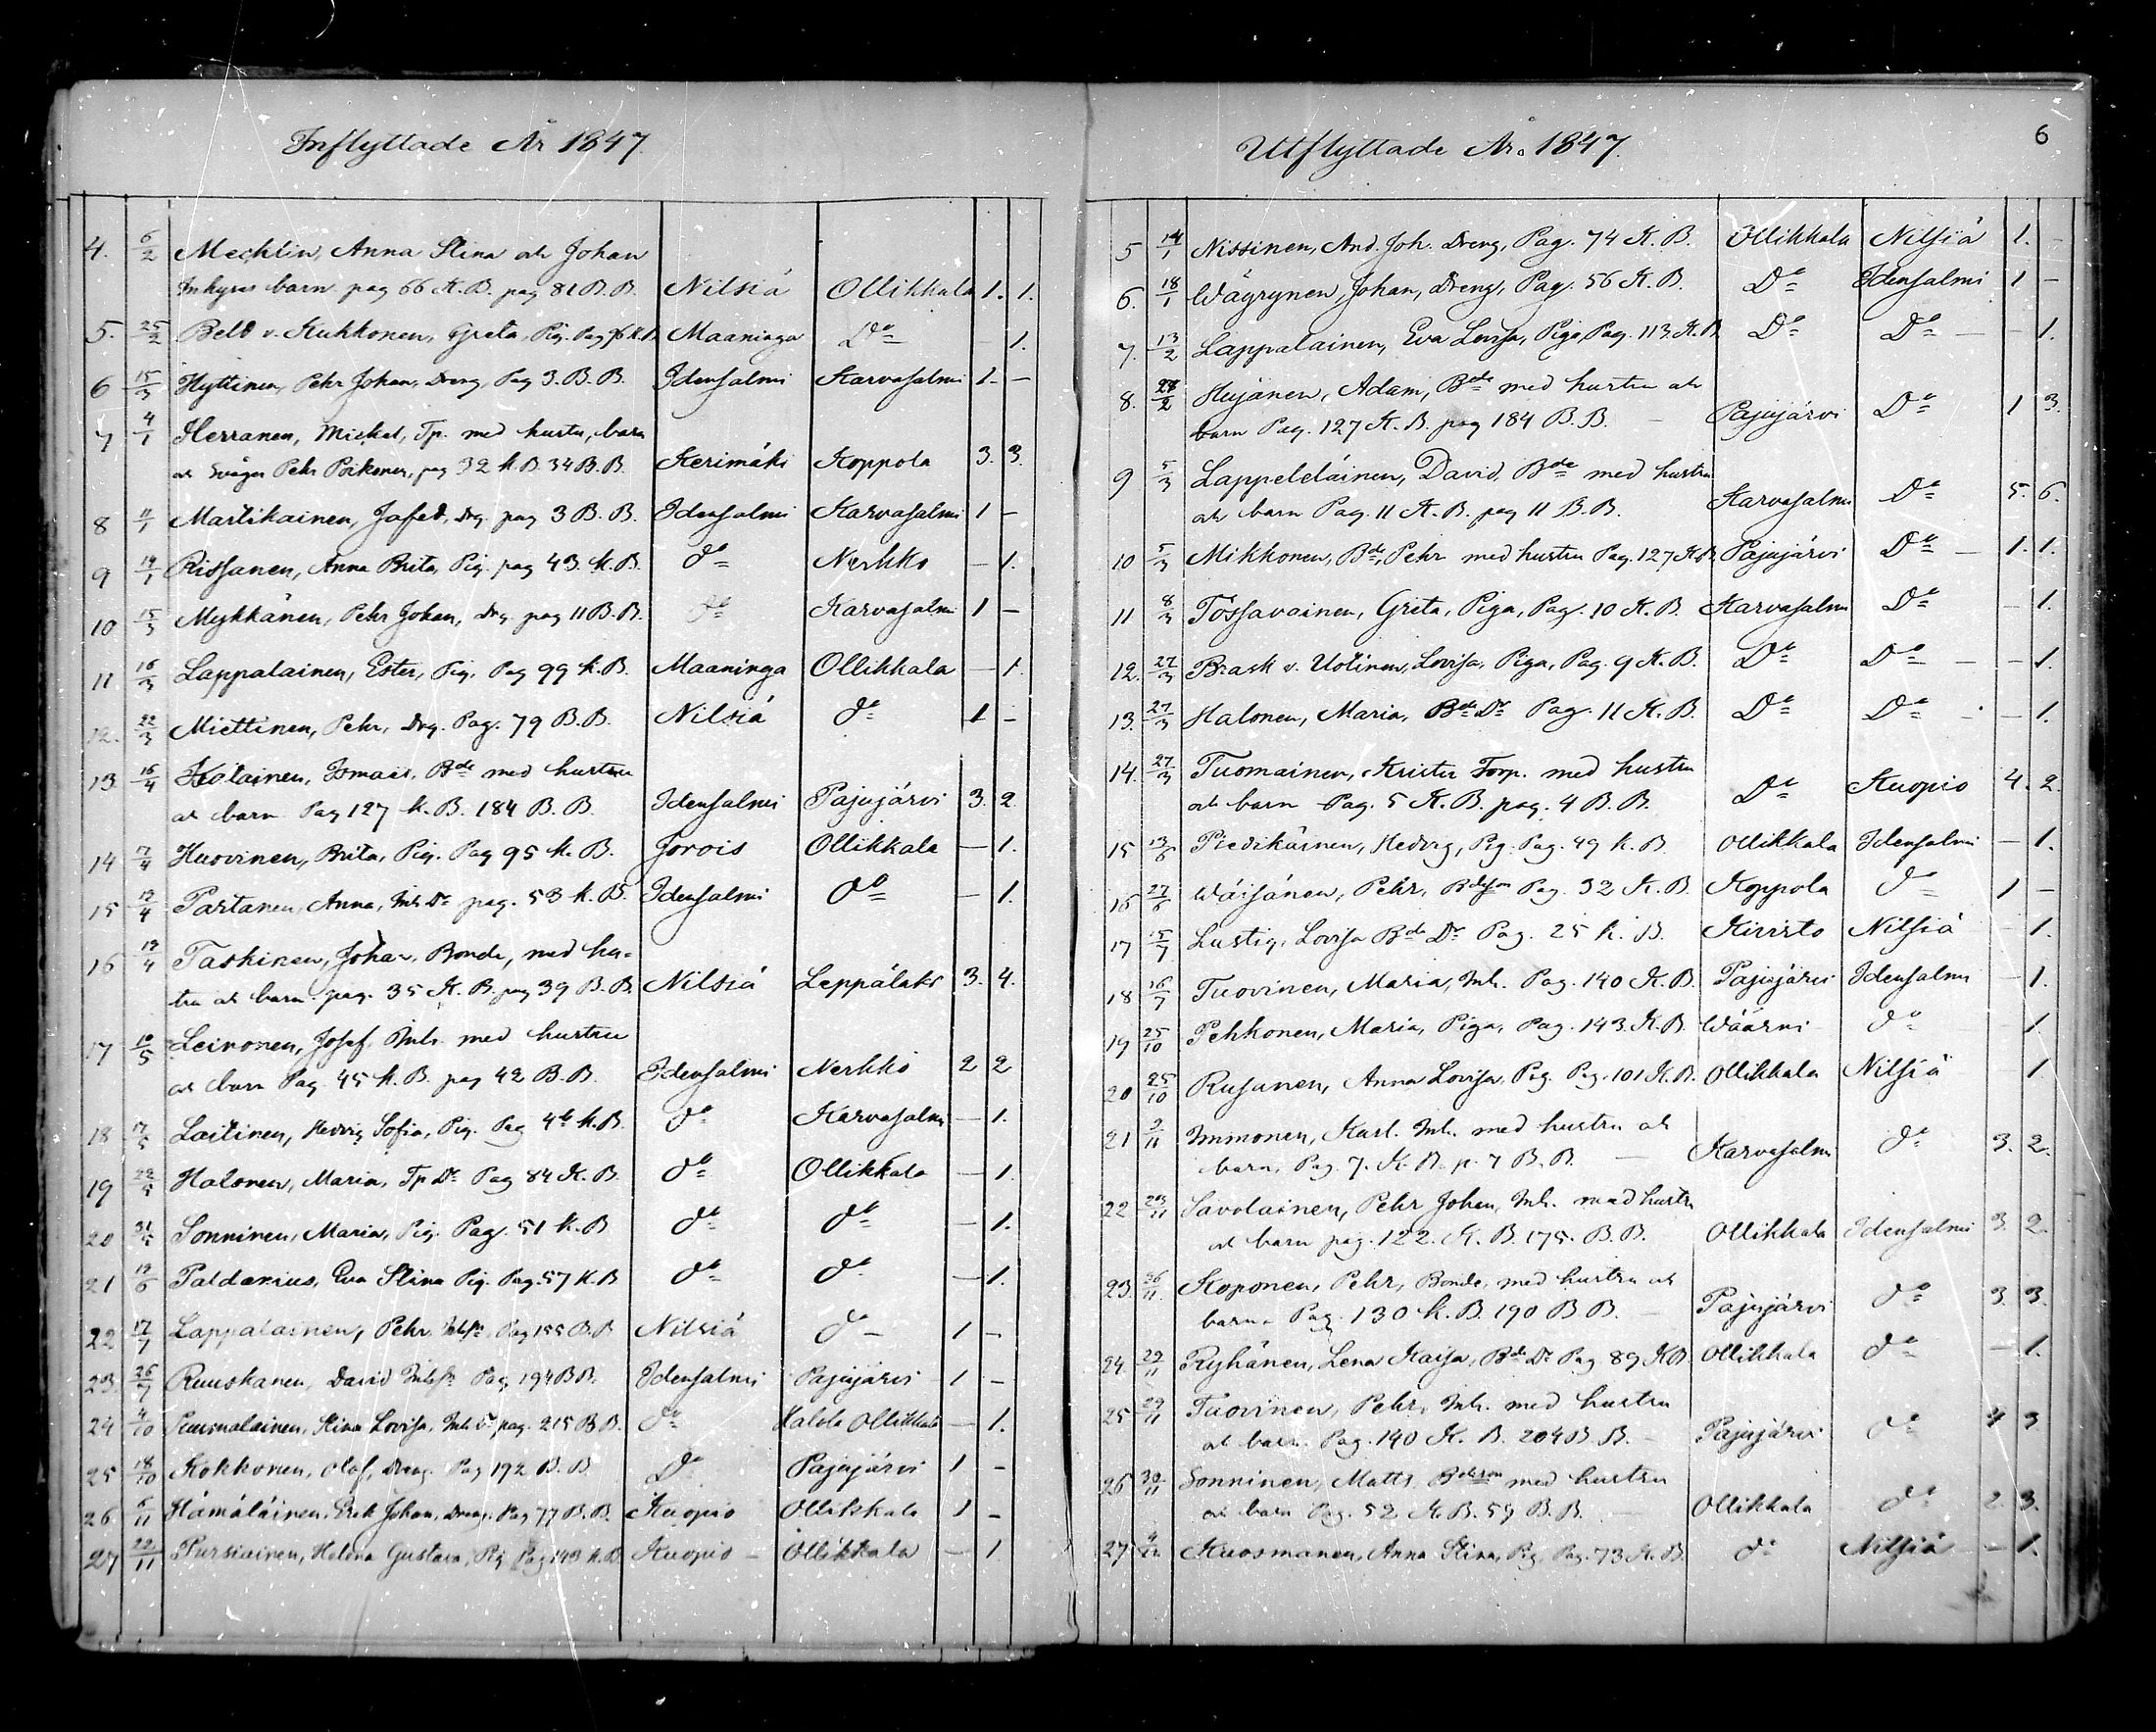 Inflyttade År 1847.
4. 6/2 Mechlin, Anna Stina och Johan
Inhyses barn pag 66 K.B. pag 81 B.B. Nilsiä Ollikkala 1. 1.
5. 25/2 Beld v. Kukkonen, Greta, Pig. Pag 76 K.B. Maaninga Do - 1.
6 15/3 Hyttinen, Pehr Johan, Dreng, Pag 3. B.B. Idensalmi Karvasalmi 1. -
7 4/1 Herranen, Mickel, Tp. med hustru, barn
och Svåger Pehr Poikonen, pag 32 K.B. 34 B.B. Kerimäki Koppola 3. 3.
8 11/1 Martikainen, Jafed, Drg. pag 3 B.B. Idensalmi Karvasalmi 1 -
9 14/1 Rissanen, Anna Brita, Pig. pag 43. K.B. do Nerkko - 1.
10 15/3 Mykkänen, Pehr Johan, Drg. pag 11 B.B. do Karvasalmi 1 -
11 16/3 Lappalainen, Ester, Pig. Pag 99 K.B. Maaninga Ollikkala - 1.
12. 22/3 Miettinen, Pehr, Drg. Pag. 79 B.B. Nilsiä do 1 -
13 16/4 Kolainen, Ismael, Bde med hustru
och barn Pag 127 K.B. 184 B.B. Idensalmi Pajujärvi 3. 2.
14 17/4 Huovinen, Brita, Pig. Pag 95 K.B. Jorois Ollikkala - 1.
15 19/4 Partanen, Anna, Inh. Dr pag. 53 K.B. Idensalmi do - 1.
16 19/4 Taskinen, Johan, Bonde, med hu-
tru och barn pag. 35 K.B. pag 39 B.B. Nilsiä Leppälaks 3. 4.
17 10/5 Leinonen, Josef. Inh. med hustru
och barn Pag. 45 K.B. pag 42 B.B. Idensalmi Nerkko 2 2
18 17/5 Laitinen, Hedvig Sofia, Pig. Pag 4b K.B. do Karvasalmi - 1.
19 22/5 Halonen, Maria, Tp Dr Pag 84 K.B. do Ollikkala - 1.
20 31/5 Sonninen, Maria, Pig. Pag. 51 K.B do do - 1.
21 19/6 Paldanius, Eva Stina Pig. Pag. 57 K.B do do - 1.
22 17/7 Lappalainen, Pehr. Inhsn. Pag 155 B.B Nilsiä do 1 -
23. 26/7 Ruuskanen, David Inhsn Pag. 194 B.B. Idensalmi Pajujärvi 1 -
24 4/10 Stina Lovisa, Inh. Dr pag. 215 B.B. do Ollikkala - 1.
25 18/10 Kokkonen, Olof, Dreng. Pag 192 B.B. Do Pajujärvi 1 -
26. 6/11 Hämäläinen, Erik Johan, Dreng. Pag 77 B.B. Kuopio Ollikkala 1 -
27 22/11 Pursiainen, Helena Gustava, Pig Pag 143 K.B. Kuopio - Ollikkala - 1
6
Utflyttade År. 1847.
5 14/1 Nissinen, And. Joh. Dreng, Pag. 74 K.B. Ollikkala Nilsiä 1. -
6. 18/1 Wäyrynen, Johan, Dreng, Pag. 56 K.B. Do Idensalmi 1 -
7. 13/2 Lappalainen, Eva Lovisa, Piga, Pag. 113. K.B. Do Do - - 1.
8. 28/2 Hujänen, Adam, Bde med hustru och
barn Pag. 127 K.B. pag 184 B.B. - Pajujärvi Do 1 3.
9 5/3 Lappeteläinen, David, Bde med hustru
och barn Pag. 11 K.B. pag 11 B.B. Karvasalmi Do 5. 6.
10 5/3 Mikkonen, Bde, Pehr med hustru Pag. 127 K.B. Pajujärvi Do - 1. 1.
11 8/3 Tossavainen, Grita, Piga, Pag. 10 K.B. Karvasalmi Do - 1.
12. 27/3 Brask v. Uotinen, Lovisa, Piga, Pag. 9 K.B. Do Do - - 1.
13. 27/3 Halonen, Maria, Bde Dr Pag. 11 K.B. Do Do - - 1.
14. 27/3 Tuomainen, Krister Torp. med hustru
och barn Pag. 5 K.B. pag. 4 B.B. Do Kuopio 4. 2.
15 13/6 Piedikäinen, Hedvig, Pig. Pag. 49 K.B. Ollikkala Idensalmi - 1.
16 27/6 Wäisänen, Pehr, Bdeson Pag. 32 K.B. Koppola do 1 -
17 15/7 Lustig, Lovisa Bde Dr Pag. 25 K.B. Kivisto Nilsiä - 1.
18 16/7 Tuovinen, Maria, Inh. Pag. 140 K.B. Pajujärvi Idensalmi - 1.
19 25/10 Pehkonen, Maria, Piga, Pag. 143. K.B. Wäärni do 1.
20 25/10 Rusanen, Anna Lovisa, Pig. Pag. 101 K.B. Ollikkala Nilsiä 1
21 2/11 Immonen, Karl. Inh. med hustru och
barn, Pag. 7. K.B. p. 7 B.B. - Karvasalmi do 3. 2.
22 23/11 Savolainen, Pehr Johan, Inh. med hustru
och barn pag. 122. K.B. 175. B.B. Ollikkala Idensalmi 3. 2.
23. 26/11. Koponen, Pehr, Bonde, med hustru och
barn. Pag. 130 K.B. 190 B B. - Pajujärvi do 3. 3.
24. 29/11 Ryhänen, Lena Kaisa, Bde Dr Pag. 89 KB Ollikkala do - 1.
25 29/11 Tuovinen, Pehr, Inh. med hustru
och barn. Pag. 140 K.B. 204 B.B. - Pajujärvi do 4 3
26 30/11 Sonninen, Matts, Bdeson med hustru
och barn Pag. 52 K.B. 59 B.B. - Ollikkala do 2. 3.
27 Kuosmanen, Anna Stina, Pig. Pag. 73 K.B. do Nilsiä - 1.